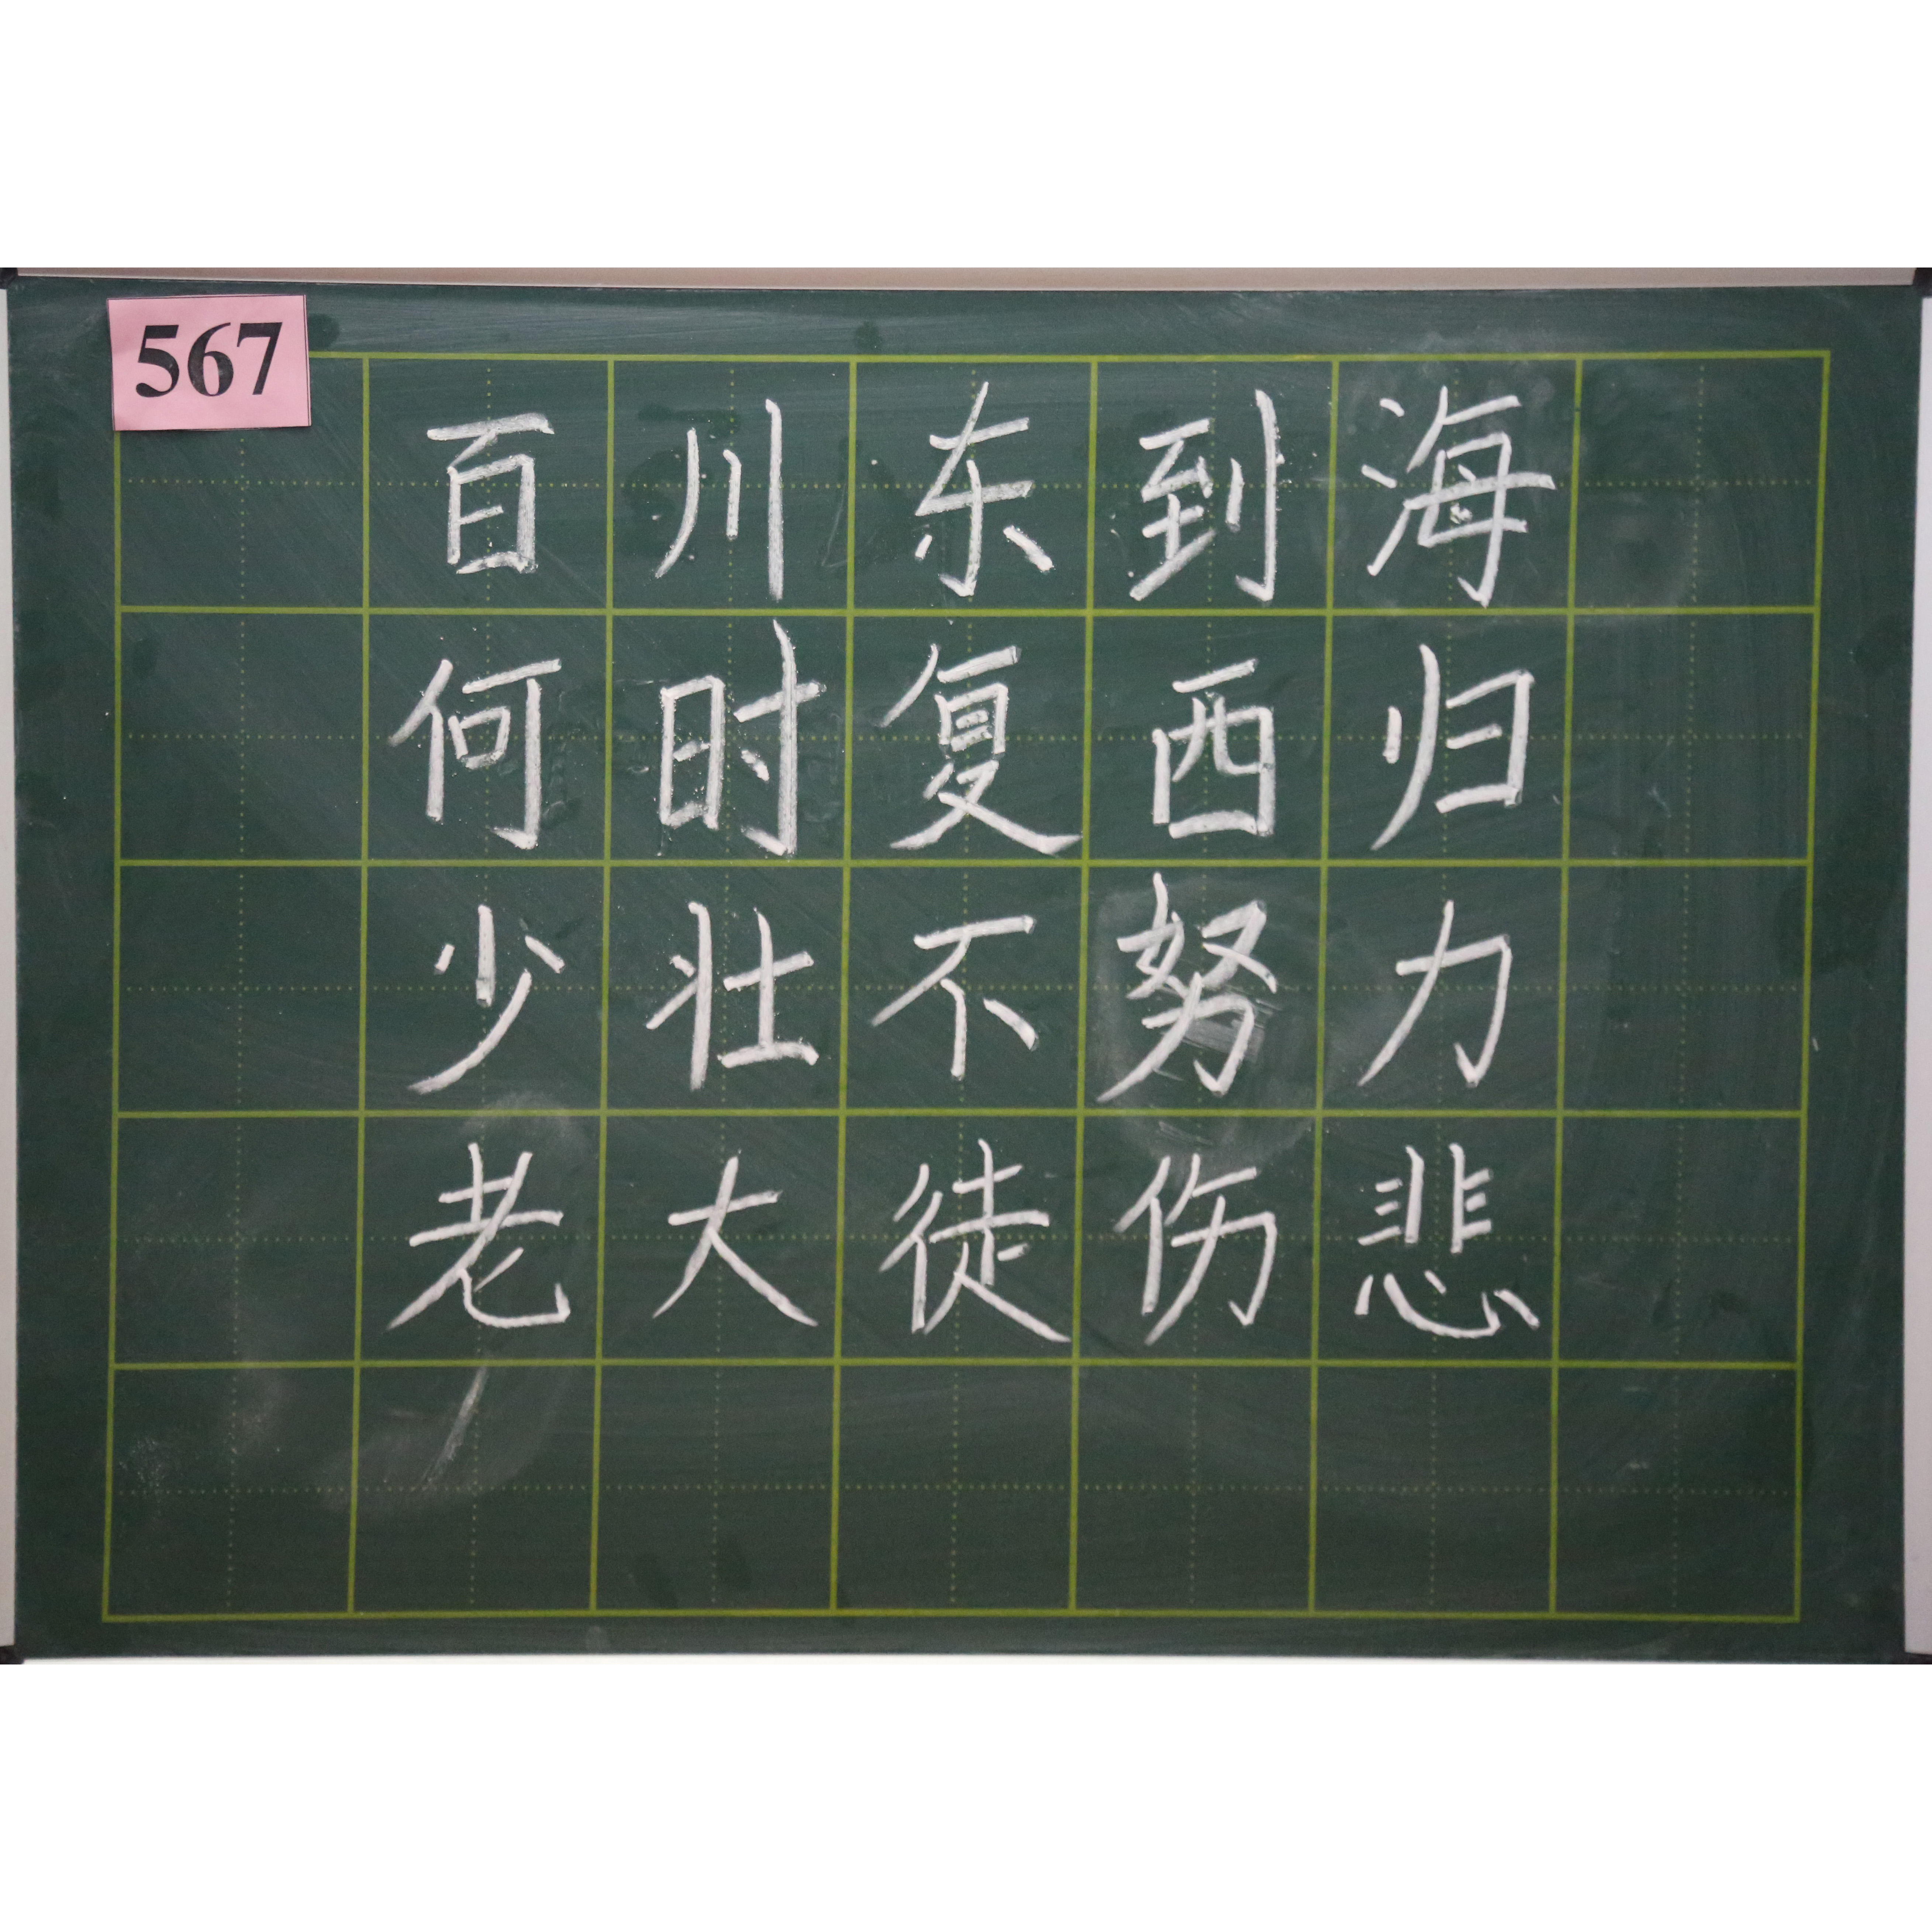 567
百川东到海
何时复西归
少壮不努力
老大徒伤悲